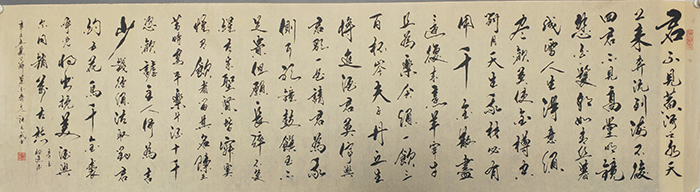 君不見黃河之水天
上來奔流到海不復
回君不見高堂明鏡
悲白髮朝如青絲暮
成雪人生得意須
盡歡莫使金樽空
對月天生我材必有
用千金散盡
還復來烹羊宰牛
且為樂會須一飲三
百杯岑夫子丹丘生
將進酒君莫停與
君歌一曲請君為我
側耳聽鐘鼓饌玉不
足貴但願長醉不復
醒古來聖賢皆寂
寞惟有飲者留其名陳王
昔時宴平樂斗酒十千
恣歡謔主人何為言
少錢徑須沽取對君
酌五花馬千金裘
呼兒將出換美酒與
爾同銷萬古愁